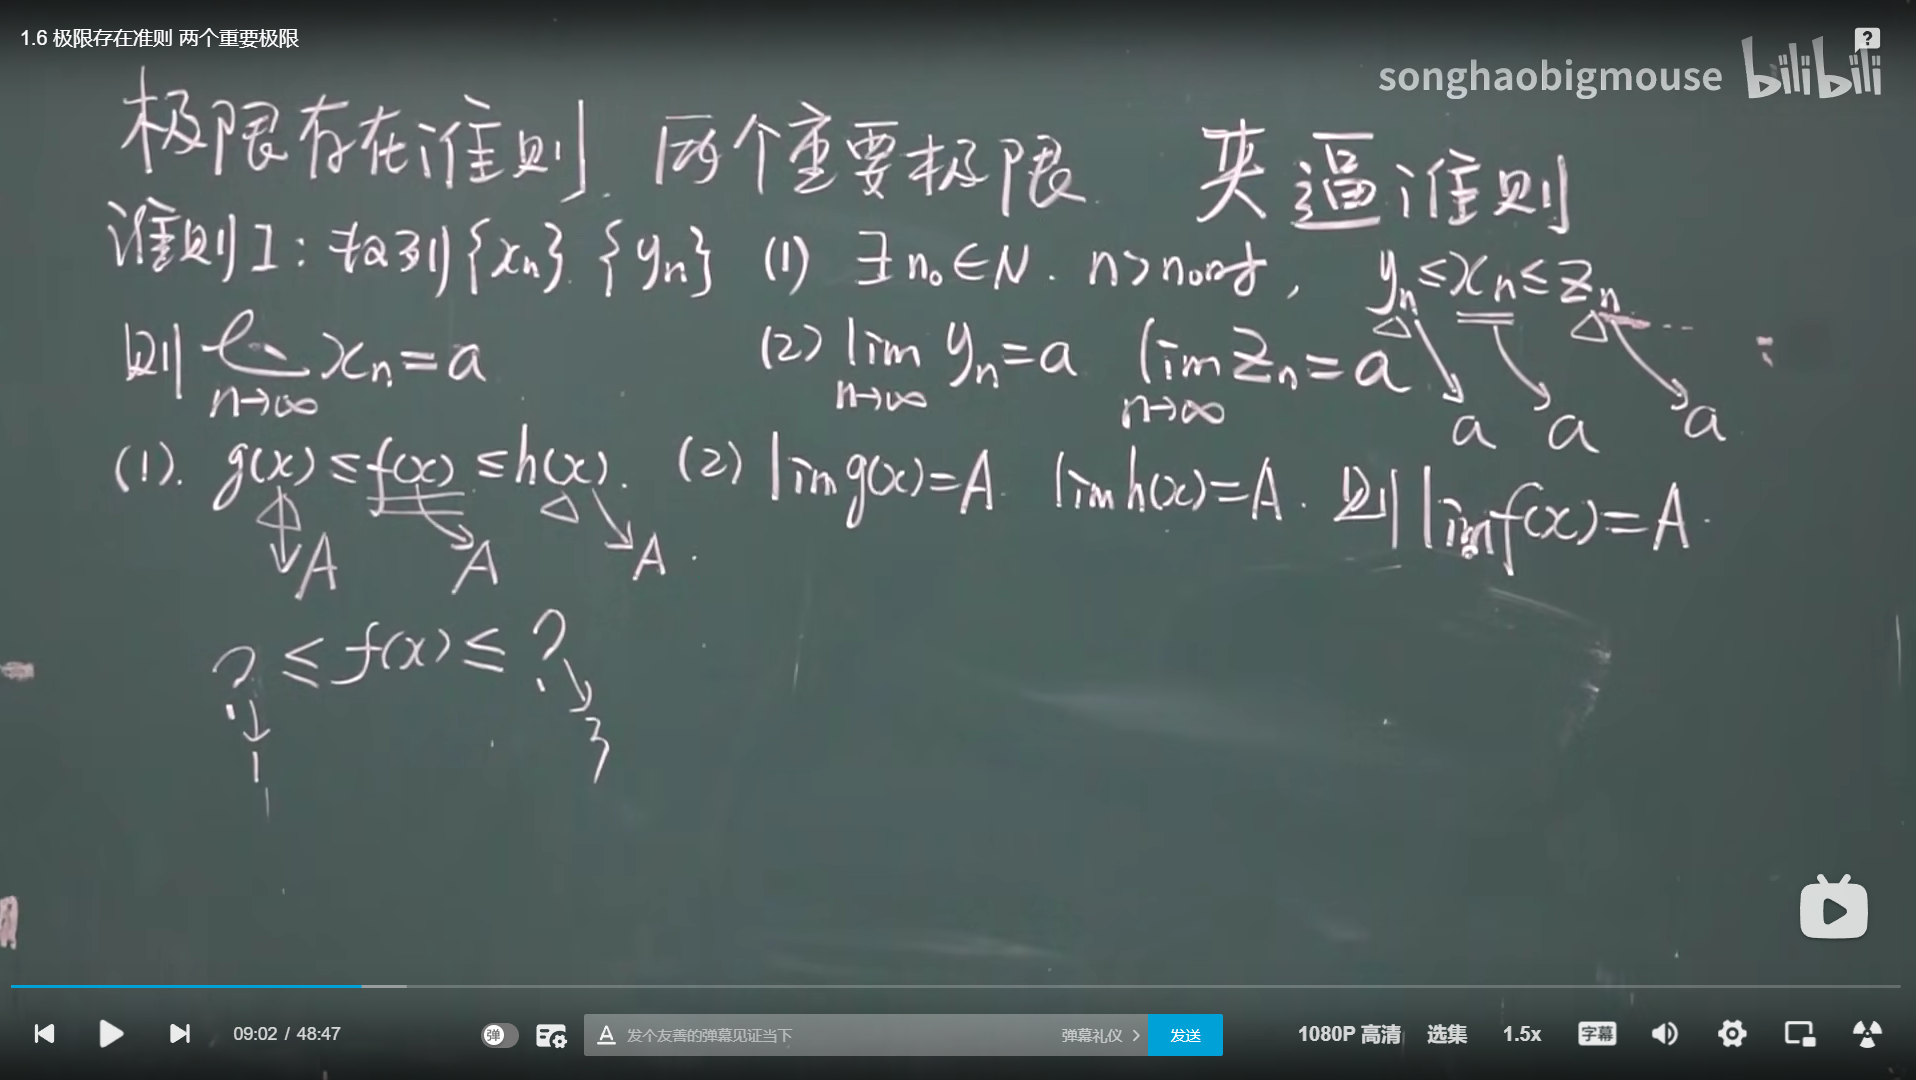 1.6 极限存在准则 两个重要极限
songhaobigmouse bilibili
极限存在准则. 两个重要极限. 夹逼准则
准则I: 数列{xₙ}. {yₙ} (1) ∃n₀∈N. n>n₀时, yₙ≤xₙ≤zₙ
则 lim xₙ=a (2) lim yₙ=a lim zₙ=a
n→∞ n→∞ n→∞ a a a
(1). g(x)≤f(x)≤h(x). (2) lim g(x)=A. lim h(x)=A. 则 lim f(x)=A.
A A A.
? ≤ f(x) ≤ ?
1 3
09:02 / 48:47 弹 A 发个友善的弹幕见证当下 弹幕礼仪 > 发送 1080P 高清 选集 1.5x 字幕